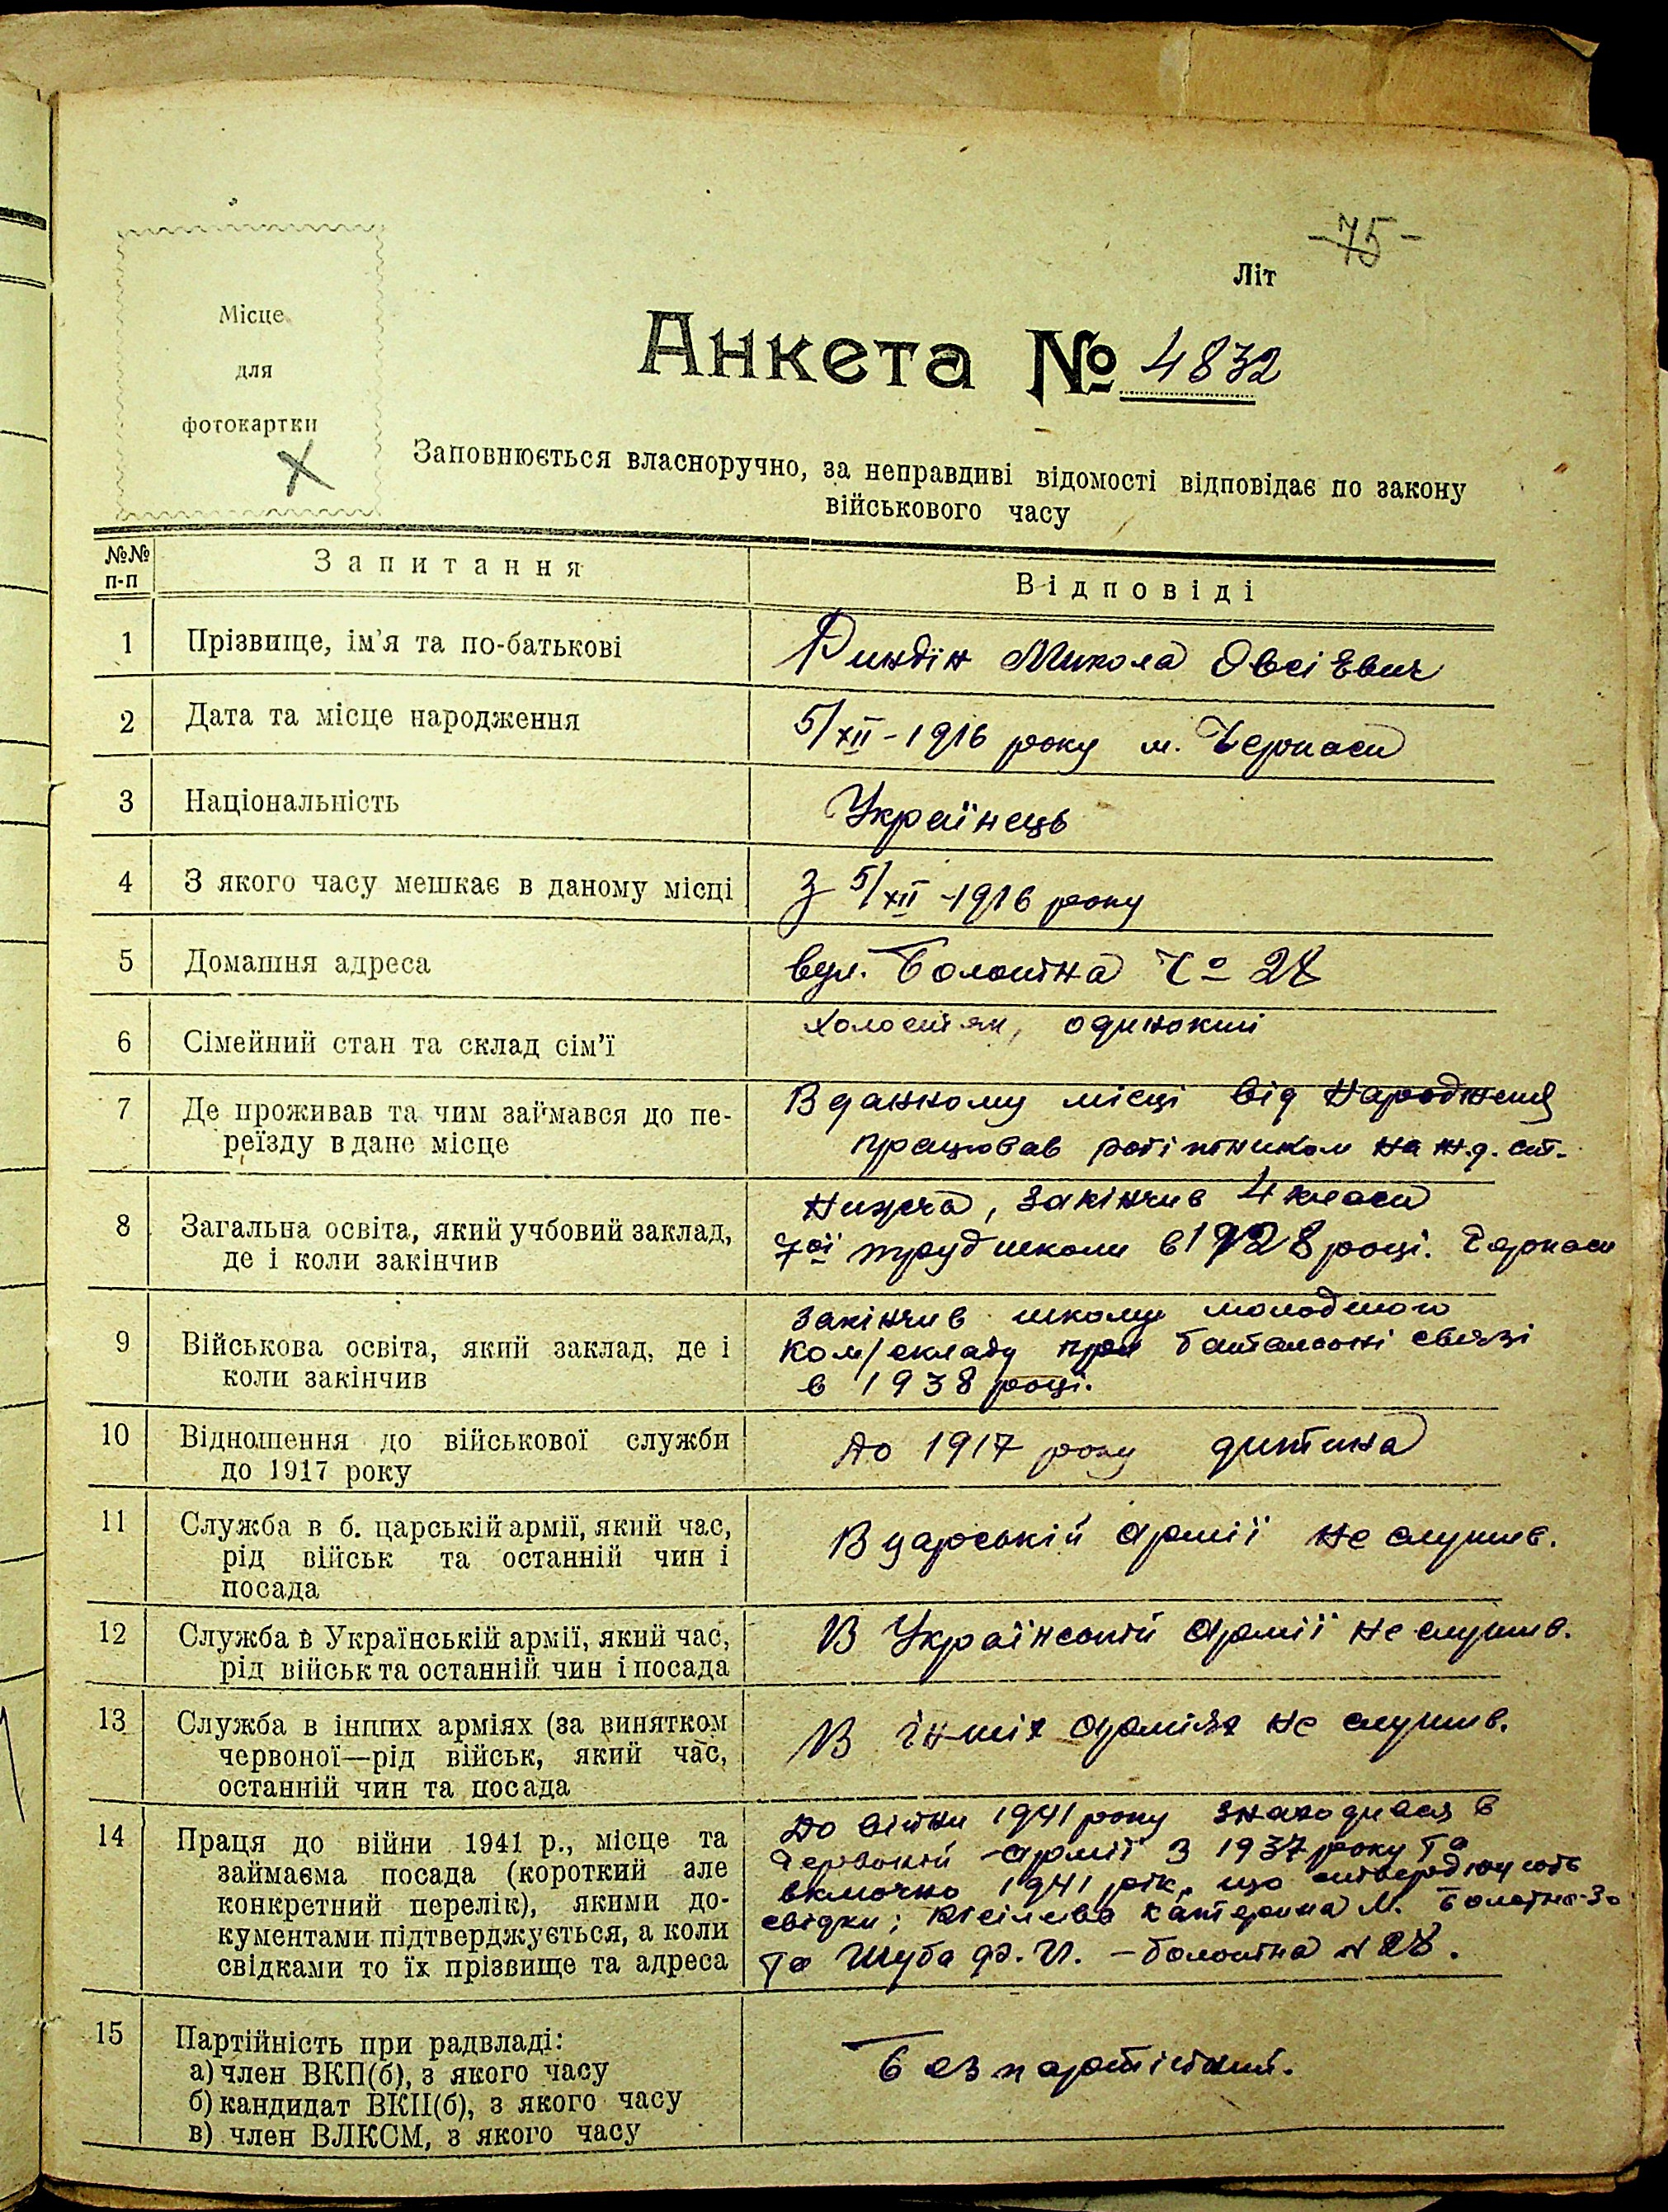 -75-
Літ
Місце
для
фотокартки
Анкета № 4832
Заповнюється власноручно, за неправдиві відомості відповідає по закону
військового часу
№№
п-п
Запитання
Відповіді
1
Прізвище, ім'я та по-батькові
Риндін Микола Овсієвич
2
Дата та місце народження
5/XII-1916 року м. Черкаси
3
Національність
Українець
4
З якого часу мешкає в даному місці
З 5/XII-1916 року
5
Домашня адреса
вул. Болотна Ч° 28
6
Сімейний стан та склад сім'ї
холостяк, одинокий
7
Де проживав та чим займався до пе-
реїзду в дане місце
В данному місці від народженя
працював робітником на ж.д. ст.
8
Загальна освіта, який учбовий заклад,
де і коли закінчив
Нижча, закінчив 4 класи
7ої труд школи в 1928 році. Черкаси
9
Військова освіта, який заклад, де і
коли закінчив
Закінчив школу молодшого
ком/складу при батальоні связі
в 1938 році.
10
Відношення до військової служби
до 1917 року
До 1917 року дитина
11
Служба в б. царській армії, який час,
рід військ та останній чин і
посада
В царській армії не служив.
12
Служба в Українській армії, який час,
рід військ та останній чин і посада
В Українській армії не служив.
13
Служба в інших арміях (за винятком
червоної—рід військ, який час,
останній чин та посада
В інших арміях не служив.
14
Праця до війни 1941 р., місце та
займаєма посада (короткий але
конкретний перелік), якими до-
кументами підтверджується, а коли
свідками то їх прізвище та адреса
До війни 1941 року знаходився в
Червоній армії з 1937 року та
включно 1941 рік, що стверджують
свідки; Катерина М. Болотна 30
та Шуба Ф. И. - Болотна № 28.
15
Партійність при радвладі:
а) член ВКП(б), з якого часу
б) кандидат ВКП(б), з якого часу
в) член ВЛКСМ, з якого часу
Безпартійний.